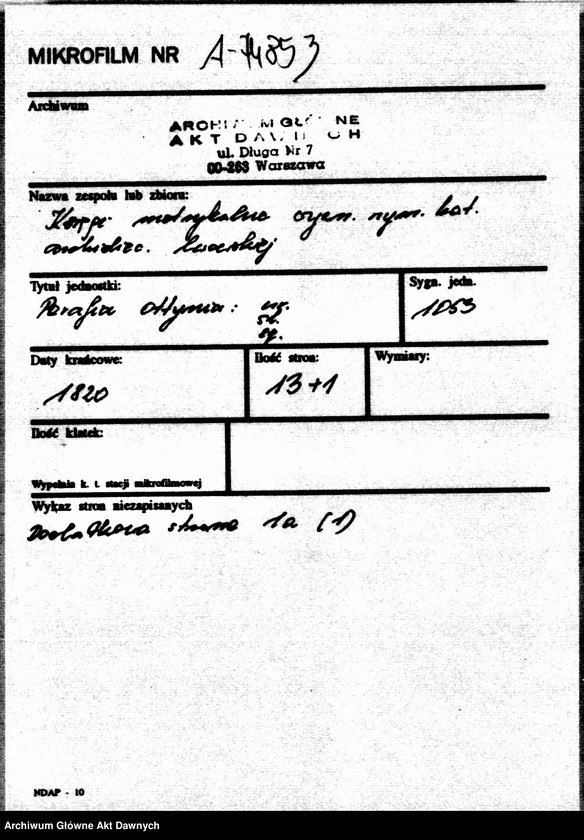 MIKROFILM NR A-74853
Archiwum
ARCHI M GŁ NE
AKT DAW CH
ul. Długa Nr 7
00-263 Warszawa
Nazwa zespołu lub zbioru:
Księgi metrykalne rzym. kat.
archidiec. lwowskiej
Tytuł jednostki:
Sygn. jedn.
Parafia Ottynia: ur.
1053
śl.
zg.
Daty krańcowe:
Ilość stron:
Wymiary:
1820
13+1
Ilość klatek:
Wypełnia k. t. stacji mikrofilmowej
Wykaz stron niezapisanych
Dodatkowa strona 1a (1)
NDAP - 10
Archiwum Główne Akt Dawnych